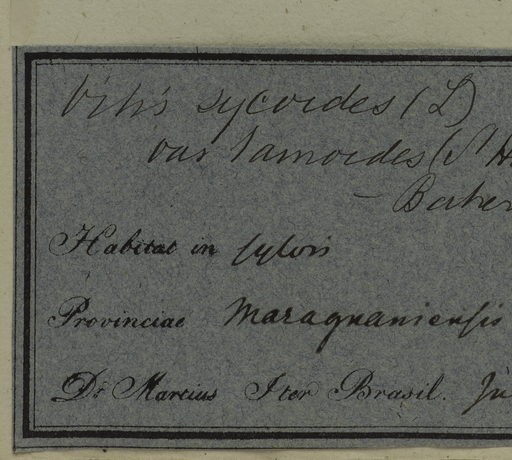 Vitis sycoides (L)
var tamoides (St H
— Baker
Habitat in sylvis
Provinciae Maragnaniensis
Dr Martius Iter Brasil. Ju